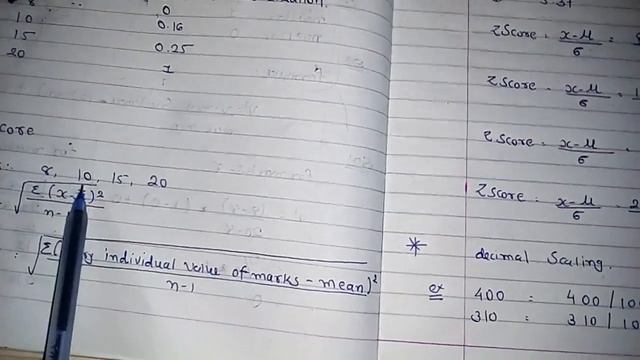 8 0
10 0.16
15 0.25
20 1
core
8, 10, 15, 20
√ Σ(x- )²
n-
√ Σ( individual value of marks - mean)²
n-1
Z Score = x-μ / σ =
Z Score = x-μ / σ =
Z Score = x-μ / σ =
Z Score = x-μ / σ = 2
* decimal Scaling.
ex 400 = 400 / 10
310 = 310 / 10